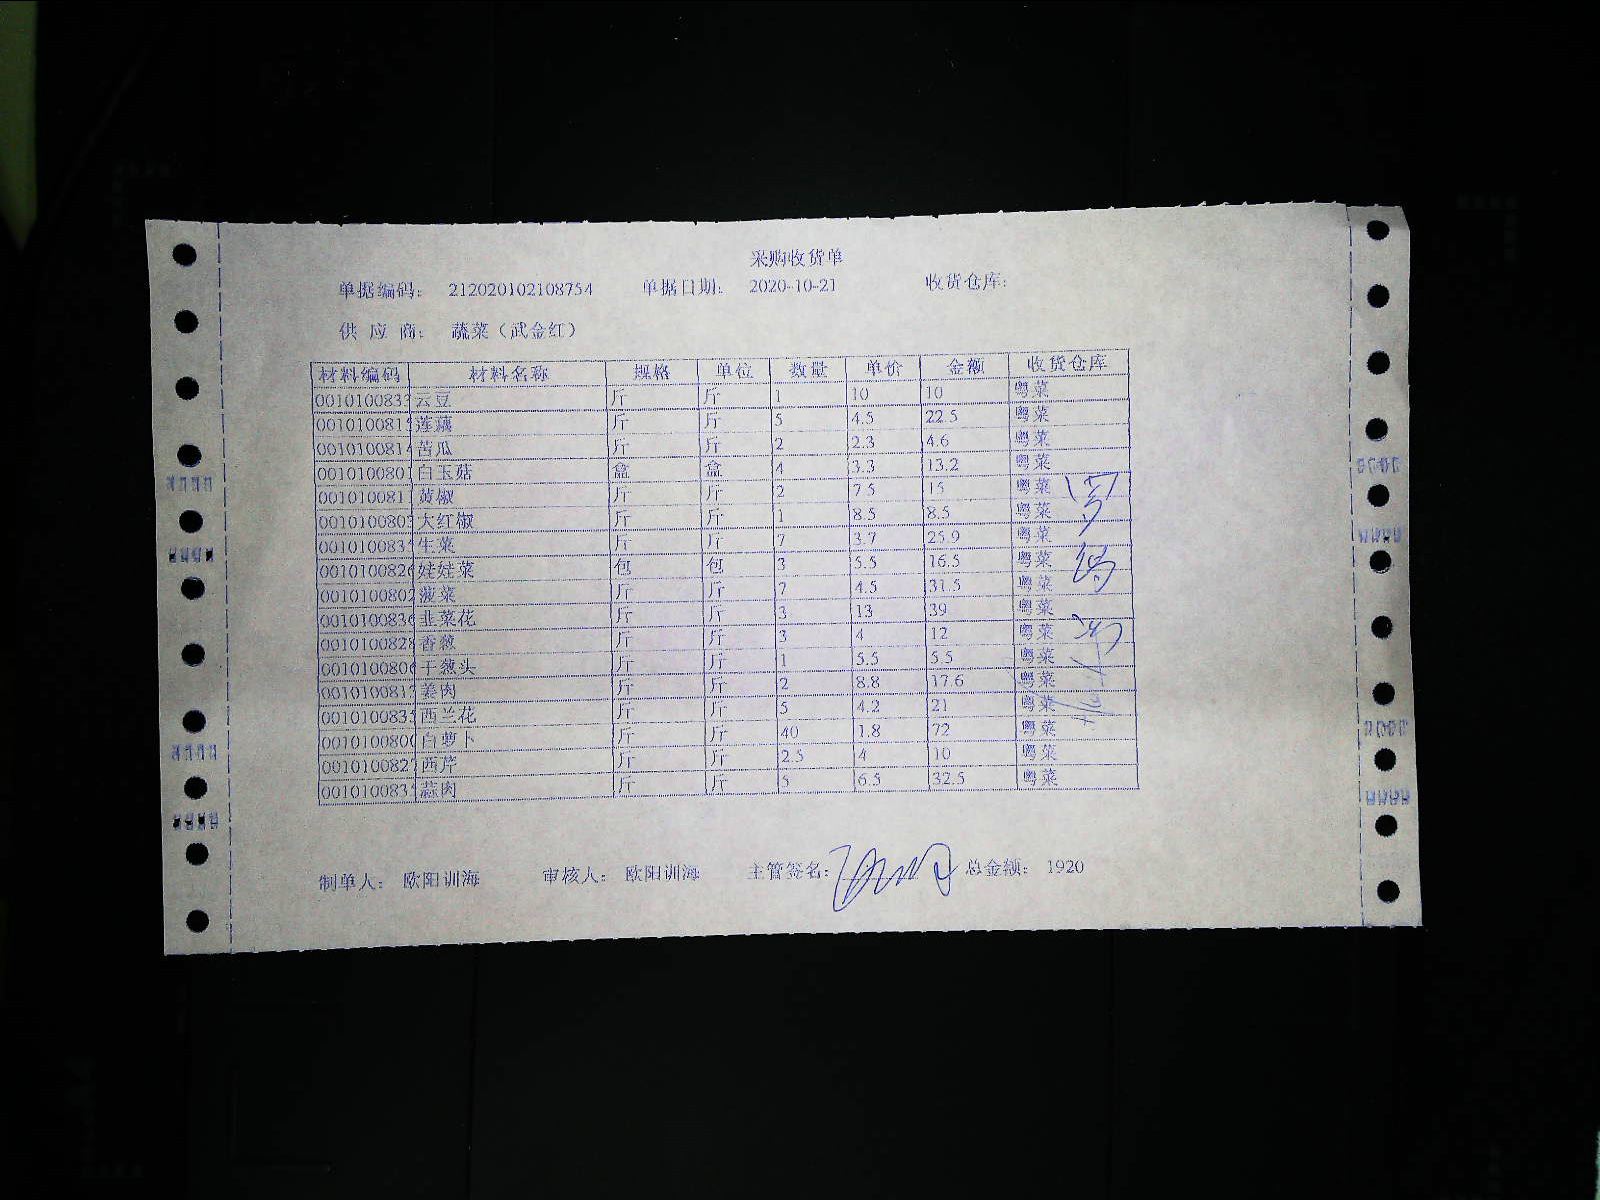 采购收货单
单据编码: 212020102108754 单据日期: 2020-10-21 收货仓库:
供 应 商: 蔬菜（武金红）
材料编码 材料名称 规格 单位 数量 单价 金额 收货仓库
0010100833 云豆 斤 斤 1 10 10 粤菜
001010081 莲藕 斤 斤 5 4.5 22.5 粤菜
001010081 苦瓜 斤 斤 2 2.3 4.6 粤菜
0010100801 白玉菇 盒 盒 4 3.3 13.2 粤菜
001010081 黄椒 斤 斤 2 7.5 15 粤菜
001010080 大红椒 斤 斤 1 8.5 8.5 粤菜
001010083 生菜 斤 斤 7 3.7 25.9 粤菜
001010082 娃娃菜 包 包 3 5.5 16.5 粤菜
0010100802 菠菜 斤 斤 7 4.5 31.5 粤菜
001010083 韭菜花 斤 斤 3 13 39 粤菜
0010100828 香葱 斤 斤 3 4 12 粤菜
001010080 干葱头 斤 斤 1 5.5 5.5 粤菜
001010081 姜肉 斤 斤 2 8.8 17.6 粤菜
001010083 西兰花 斤 斤 5 4.2 21 粤菜
001010080 白萝卜 斤 斤 40 1.8 72 粤菜
0010100827 西芹 斤 斤 2.5 4 10 粤菜
001010083 蒜肉 斤 斤 5 6.5 32.5 粤菜
制单人: 欧阳训海 审核人: 欧阳训海 主管签名: 总金额: 1920